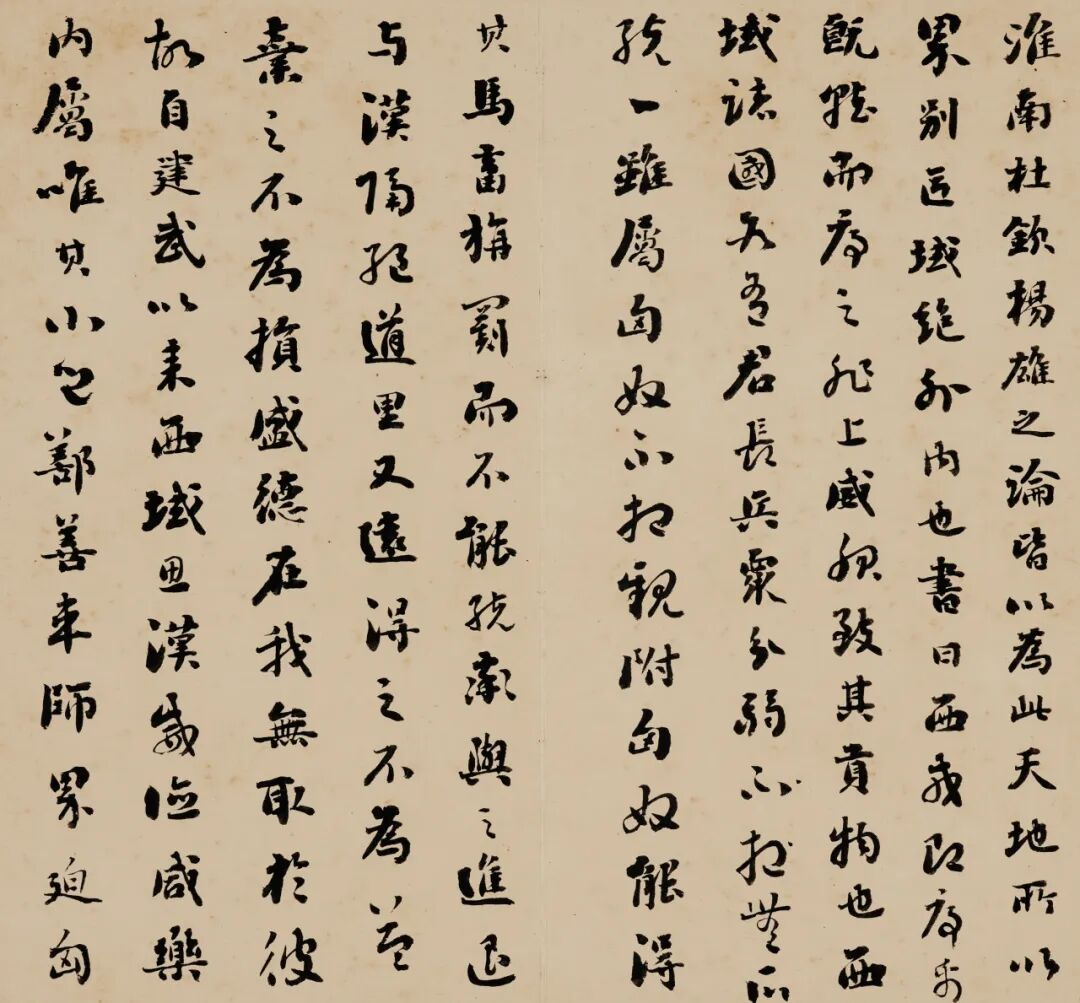 淮南杜欽楊雄之論皆以為此天地所以
界別區域絕外內也書曰西戎即序禹
既就而序之非上威服致其貢物也西
域諸國各有君長兵衆分弱不相無所
統一雖屬匈奴不相親附匈奴能得
其馬畜旃罽而不能統率與之進退
与漢隔絕道里又遠得之不為益
棄之不為損盛德在我無取於彼
故自建武以來西域思漢威德咸樂
內屬唯其小邑鄯善車師界迫匈